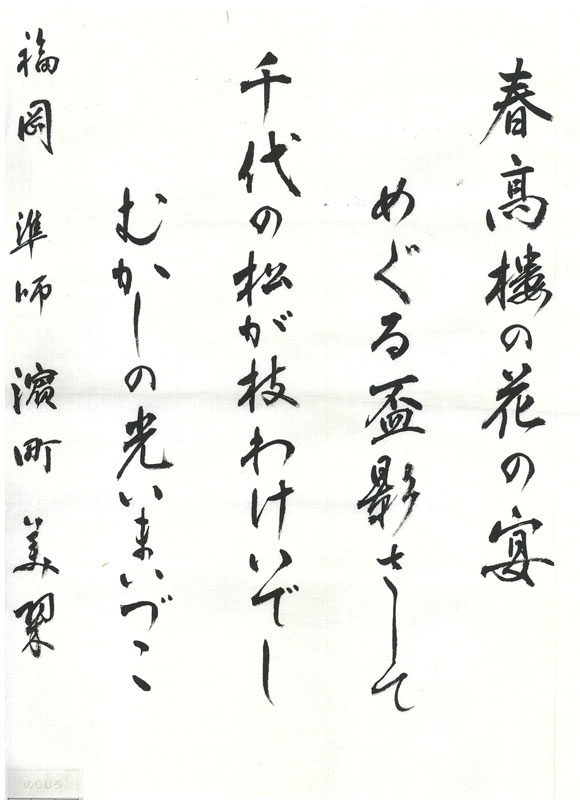 春高楼の花の宴
めぐる盃影さして
千代の松が枝わけいでし
むかしの光いまいづこ
福岡 準師 濵町 美翠
のりしろ